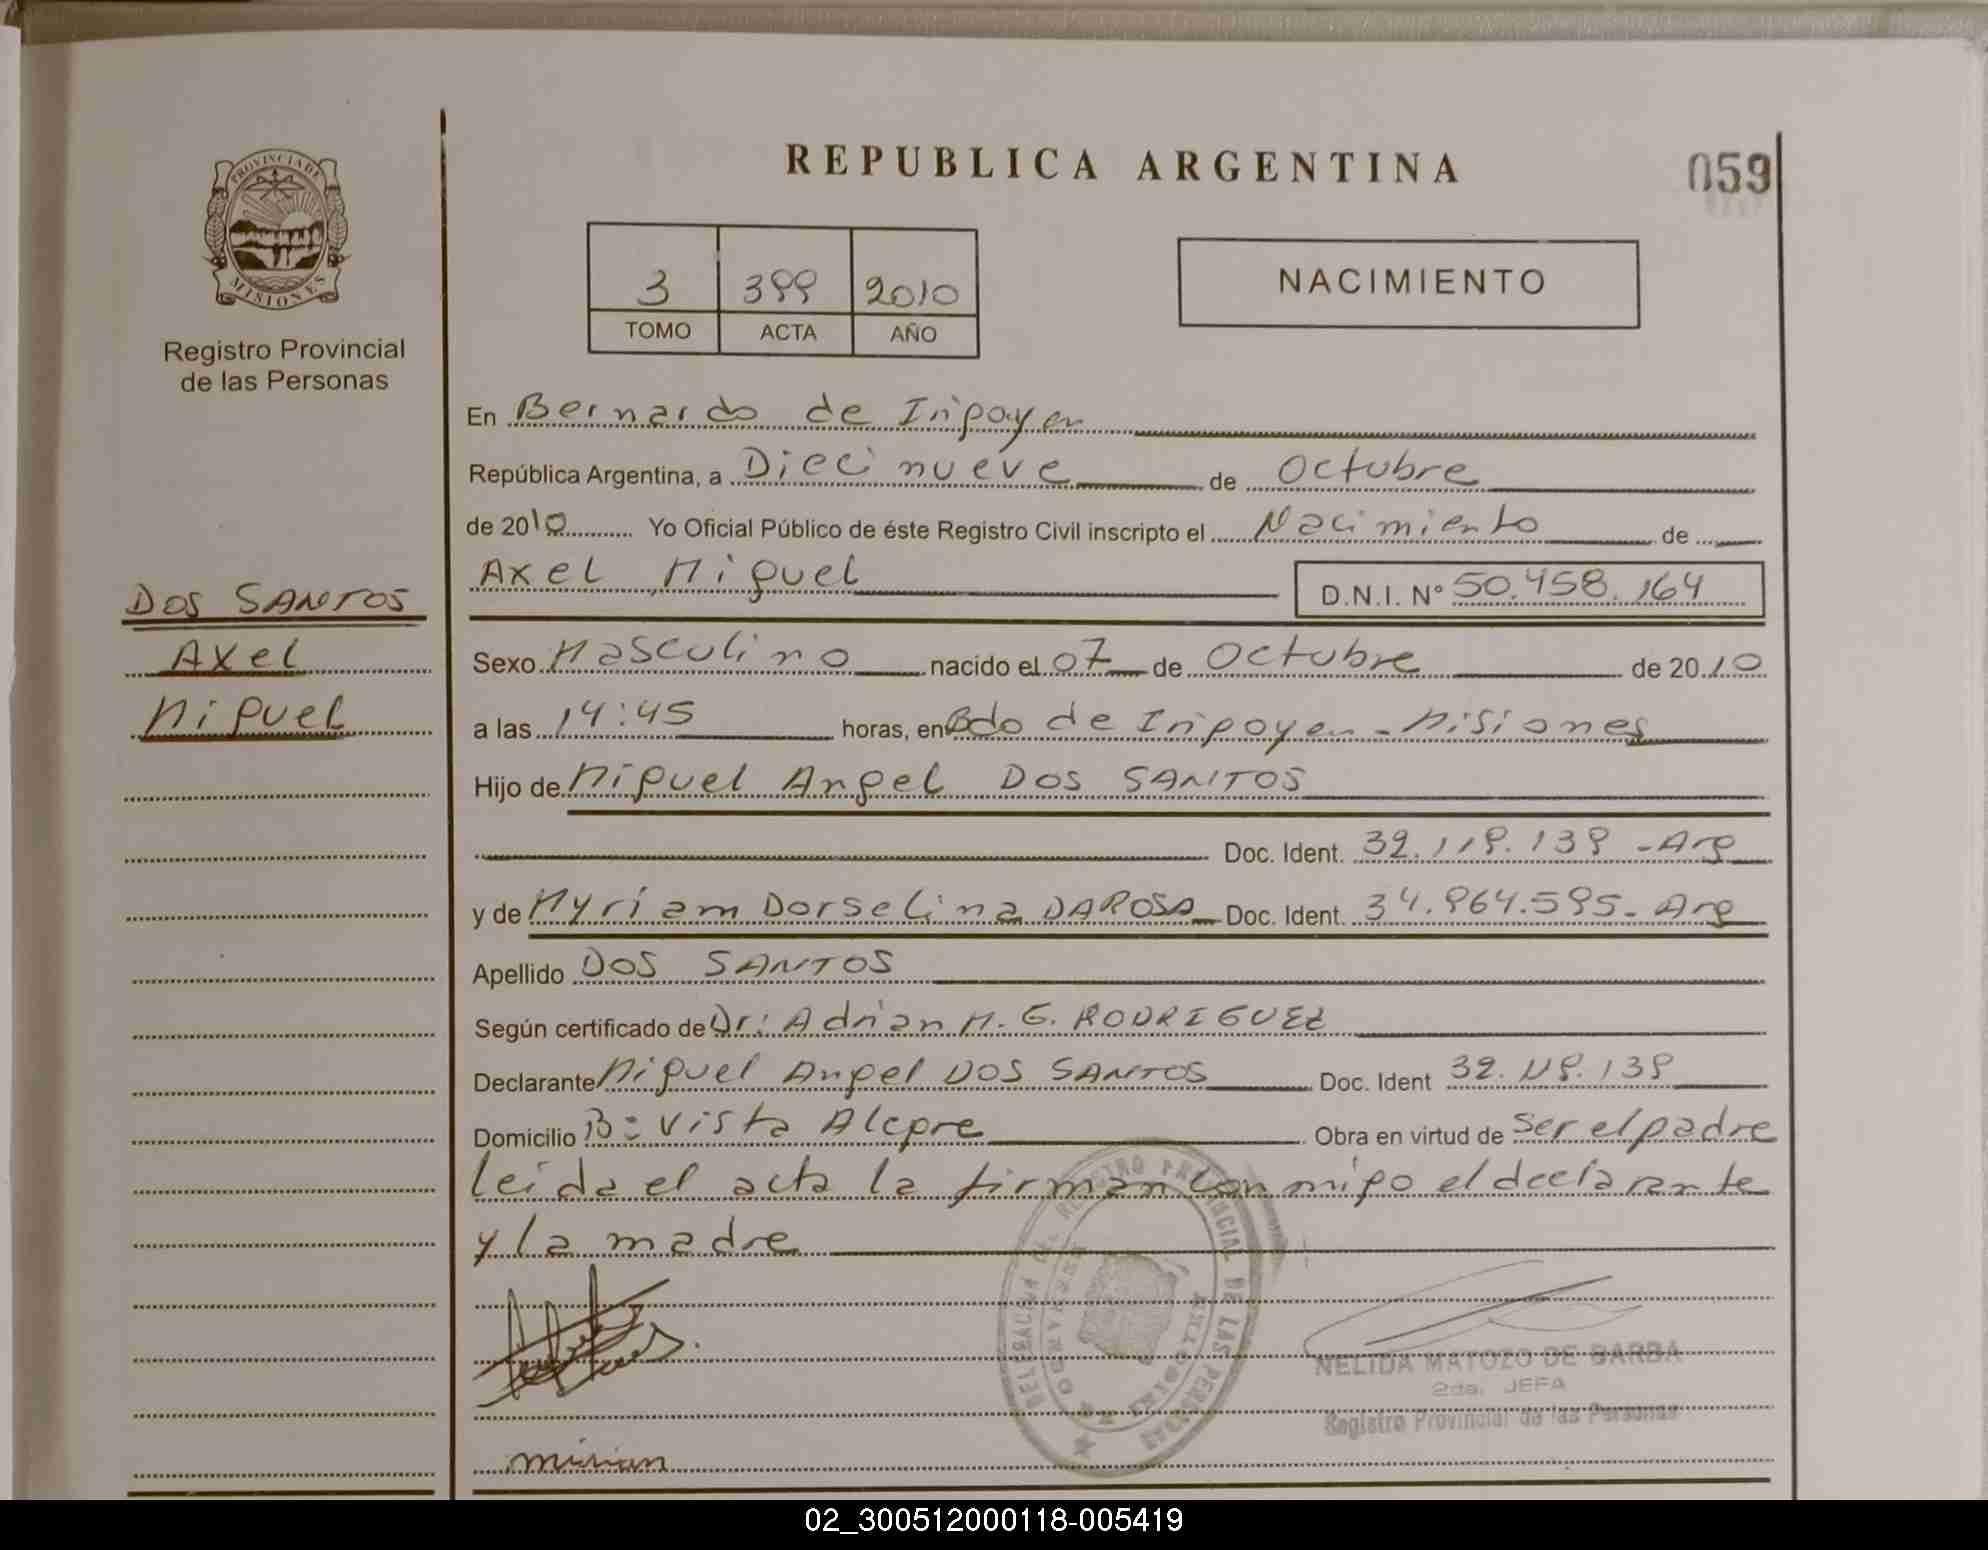 REPUBLICA ARGENTINA
059
PROVINCIA DE
MISIONES
Registro Provincial
de las Personas
3 399 2010
TOMO ACTA AÑO
NACIMIENTO
En Bernardo de Irigoyen
República Argentina, a Diecinueve de Octubre
de 2010 Yo Oficial Público de éste Registro Civil inscripto el Nacimiento de
Axel Miguel D.N.I. N° 50.458.164
DOS SANTOS
Axel
Miguel
Sexo Masculino nacido el 07 de Octubre de 2010
a las 14:45 horas, en Bdo de Irigoyen - Misiones
Hijo de Miguel Angel DOS SANTOS
Doc. Ident. 32.119.139 - Arg
y de Myriam Dorselina DAROSA Doc. Ident. 34.964.595 - Arg
Apellido DOS SANTOS
Según certificado de Dr: Adrian M. G. RODRIGUEZ
Declarante Miguel Angel DOS SANTOS Doc. Ident 32.119.139
Domicilio B: Vista Alegre Obra en virtud de Ser el padre
leida el acta la firman conmigo el declarante
y la madre
REGISTRO PROVINCIAL DE LAS PERSONAS
NELIDA MATOZO DE BARBA
2da. JEFA
Registro Provincial de las Personas
mirian
02_300512000118-005419